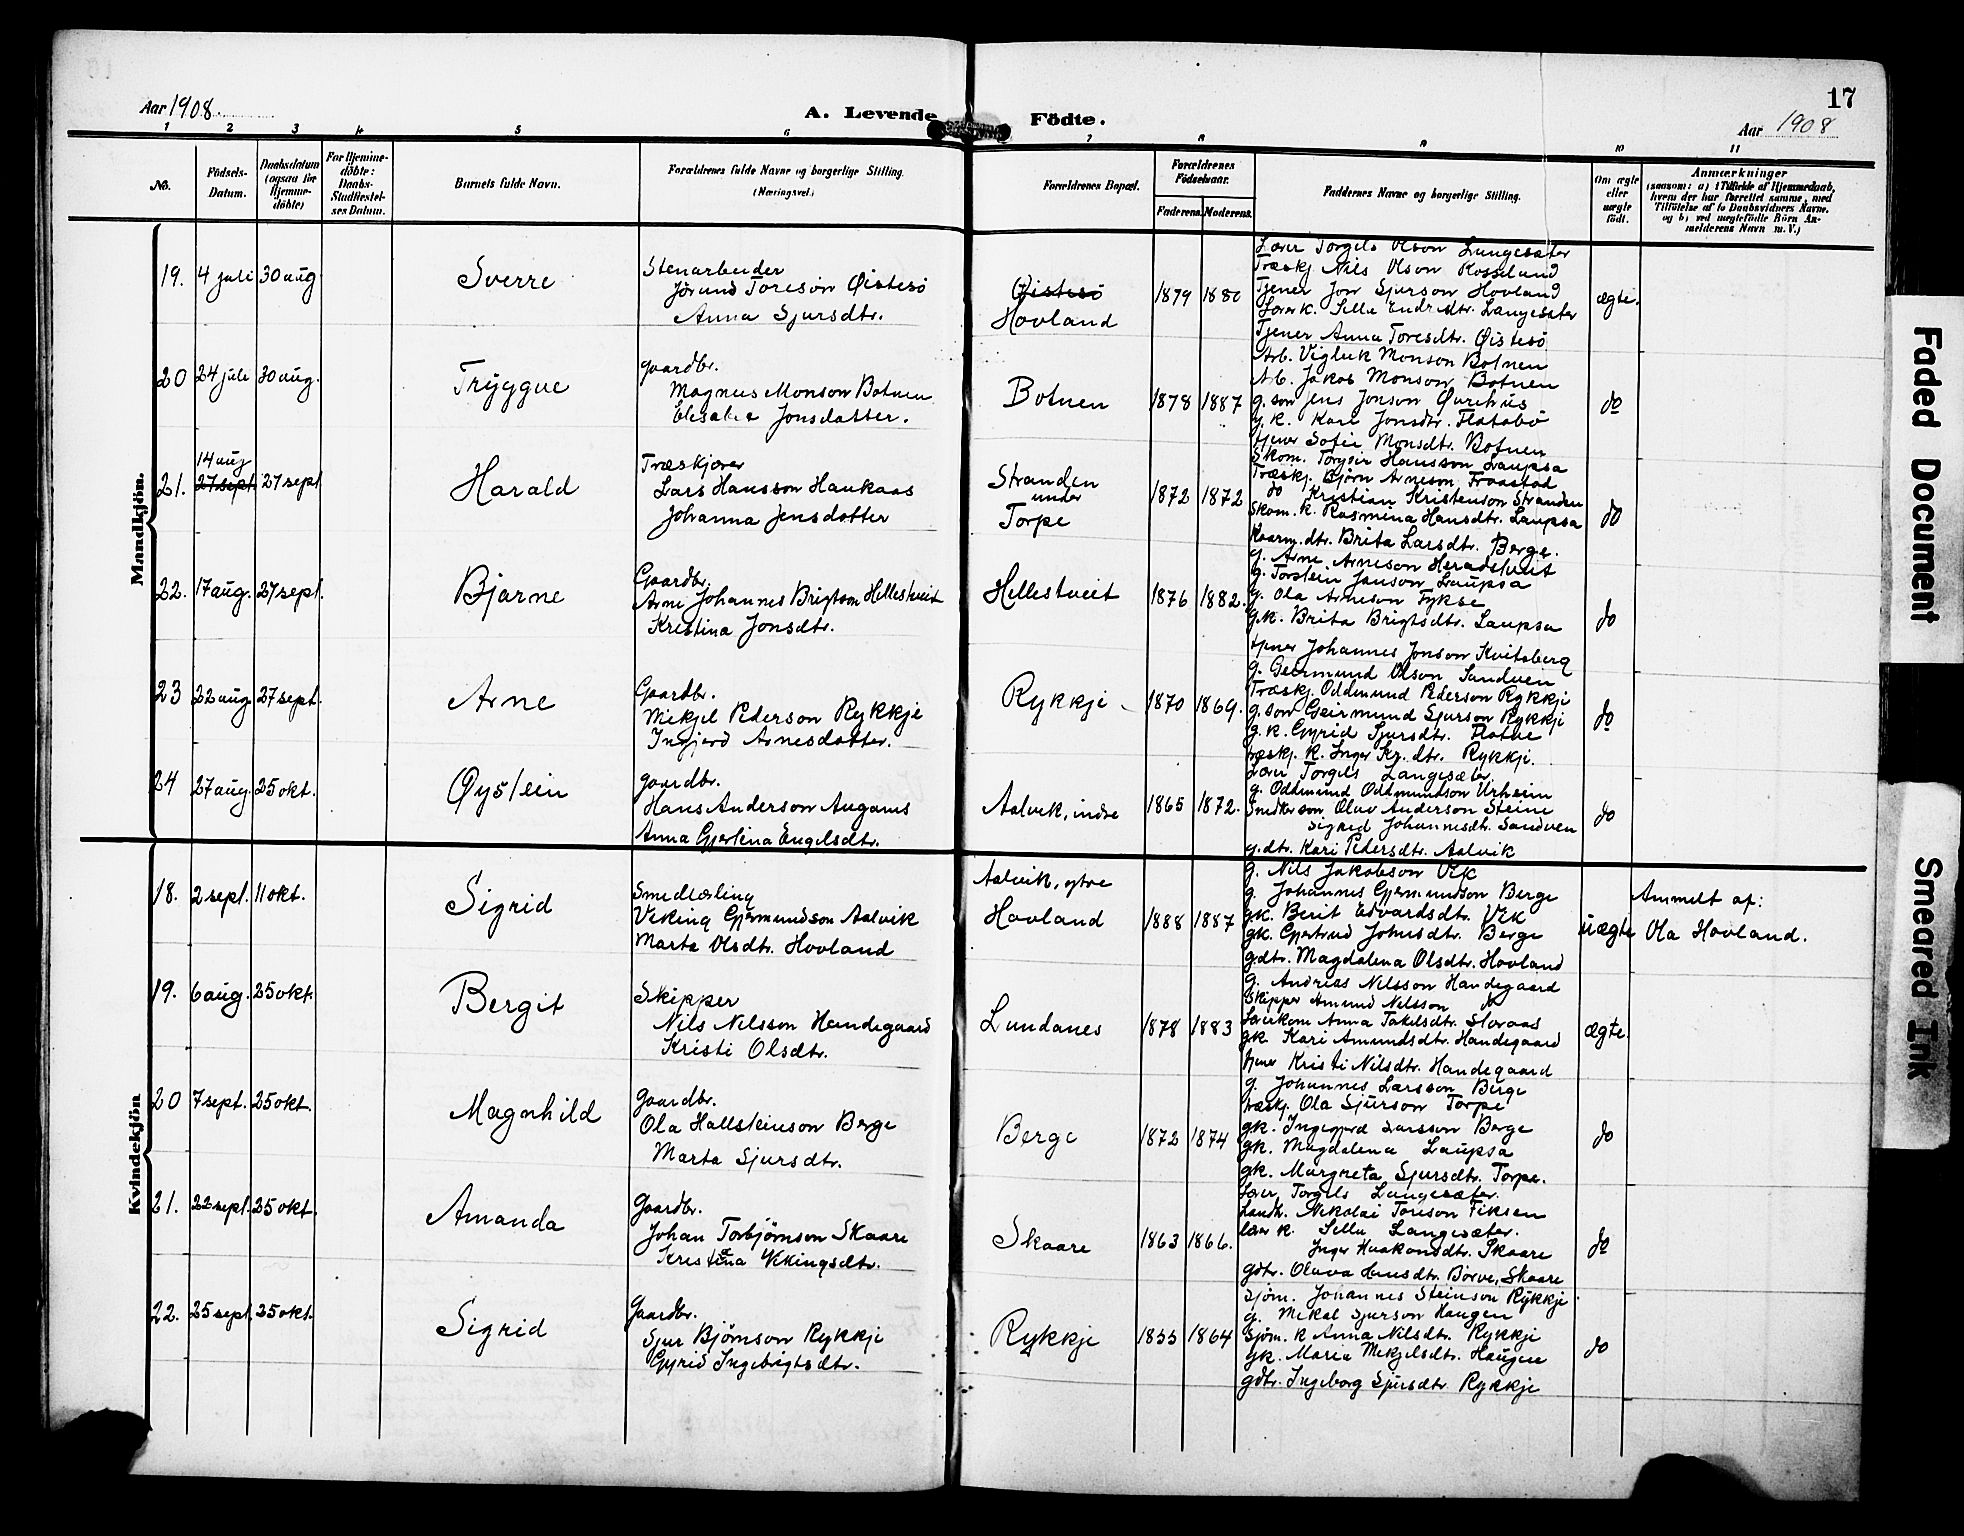 17
Aar 1908
A. Levende Födte.
Aar 1908
1 2 3 4 5 6 7 8 9 10 11
No.
Födsels-Datum.
Daabsdatum (ogsaa for Hjemme-döbte)
For Hjemme-döbte: Daabs-Stadfæstel-ses Datum.
Barnets fulde Navn.
Forældrenes fulde Navne og borgerlige Stilling. (Næringsvei.)
Forældrenes Bopæl.
Forældrenes Födselsaar.
Faderens. Moderens.
Faddernes Navne og borgerlige Stilling.
Om ægte eller uægte födt.
Anmærkninger
(saasom: a) i Tilfælde af Hjemmedaab,
hvem der har forrettet samme, med
Tilföielse af to Daabsvidners Navne.
og b) ved uægtefödte Börn An-
melderens Navn m. V.)
Mandkjön.
19. 4 juli 30 aug Sverre
Stenarbeider
Jörund Toreson Øistesö
Anna Sjursdtr.
Øistesö
Hovland
1879 1880
Lærer Torgils Olson Langesæter
Træskj Nils Olson Rosseland
Tjener Jon Sjurson Hovland
Lærerk. Sille Endresdtr. Langesæter
Tjener Anna Toresdtr. Øistesö
ægte.
20 24 juli 30 aug. Tryggve
Gaardbr.
Magnus Monson Botnen
Elisabet Jonsdatter.
Botnen
1878 1887
Arb. Vigleik Monson Botnen
Arb. Jakob Monson Botnen
g. son Jens Jonson Øurehus
g. k. Kari Jonsdtr. Flatabö
tjener Sofie Monsdtr. Botnen
do
21. 14 aug 27 sept. 27 sept Harald
Træskjærer
Lars Hansson Haukaas
Johanna Jensdatter
Stranden
under
Torpe
1872 1872
Skom. Torgeir Hansson Laupsa
Træskj. Bjørn Arneson Fraastad
do Kristian Kristenson Stranden
Skom. k. Rasmina Hansdtr. Laupsa
Kaarm. dtr. Brita Larsdtr. Berge.
do
22. 17 aug. 27 sept. Bjarne
Gaardbr.
Arne Johannes Brigtson Hellestveit
Kristina Jonsdtr.
Hellestveit
1876 1882.
g. Arne Arneson Heradstveit
g. Torstein Janson Laupsa
g. Ola Arneson Fykse
g.k. Brita Brigtsdtr. Laupsa
tjener Johannes Jonson Kvitaberg
do
23 22 aug 27 sept. Arne
Gaardbr.
Mikjel Pederson Rykkje
Ingjerd Arnesdatter.
Rykkje
1870 1869.
g. Geirmund Olson Sandven
Træskj. Oddmund Pederson Rykkje
g. son Geirmund Sjurson Rykkje
g. k. Gyrid Sjursdtr. Flotve
træskj. k. Inger Kr. dtr. Rykkje.
do
24 27 aug. 25 okt. Øystein
Gaardbr.
Hans Anderson Augarnes
Anna Gjertina Engelsdtr.
Aalvik, indre
1865 1872.
Lærer Torgils Langesæter.
g. Oddmund Oddmundson Urheim
Smedkar son Olav Anderson Steine
Sigrid Johannesdtr. Sandven
g. dtr. Kari Pedersdtr. Aalvik
do
Kvindekjön
18. 2 sept. 11 okt. Sigrid
Smedlærling
Viking Gjermundson Aalvik
Marta Olsdtr. Hovland
Aalvik, ytre
Hovland
1888 1887
g. Nils Jakobson Vik
g. Johannes Gjermundson Berge
gk. Berit Edvardsdtr. Vik
gk. Gjertrud Johnsdtr. Berge
gdtr. Magdalena Olsdtr. Hovland
uægte
Anmelt af:
Ola Hovland.
19. 6 aug. 25 okt. Bergit
Skipper
Nils Nilsson Handegaard
Kristi Olsdtr.
Lundanes
1878 1883
g. Andreas Nilsson Handegaard
Skipper Amund Nilsson do
Lærerkone Anna Takelsdtr. Storaas
gk. Kari Amundsdtr. Handegaard
tjener Kristi Nilsdtr. Handegaard
ægte.
20 7 sept. 25 okt. Magnhild
Gaardbr.
Ola Hallsteinson Berge
Marta Sjursdtr.
Berge
1872 1874
g. Johannes Larsson Berge
træskj. Ola Sjurson Torpe
gk. Ingegjerd Larsson Berge
gk. Magdalena Laupsa
gk. Margreta Sjursdtr. Torpe.
do
21. 22 sept. 25 okt. Amanda
Gaardbr.
Johan Torbjørnson Skaare
Kristina Vikingsdtr.
Skaare
1863 1866.
Lærer Torgils Langesæter.
Landh. Nikolai Toreson Fiksen
lærer k. Sille Langesæter.
Inger Haakonsdtr. Skaare
gdtr. Olava Hansdtr. Börve, Skaare
do
22. 25 sept 25 okt. Sigrid
Gaardbr.
Sjur Bjørnson Rykkje
Gyrid Ingebrigtsdtr.
Rykkje
1855 1864
Sjöm. Johannes Steinson Rykkje
g. Mikal Sjurson Haugen
Sjöm. k Anna Nilsdtr. Rykkje
gk. Maria Mikjelsdtr. Haugen
gdtr. Ingeborg Sjursdtr Rykkje
do
Faded Document
Smeared Ink